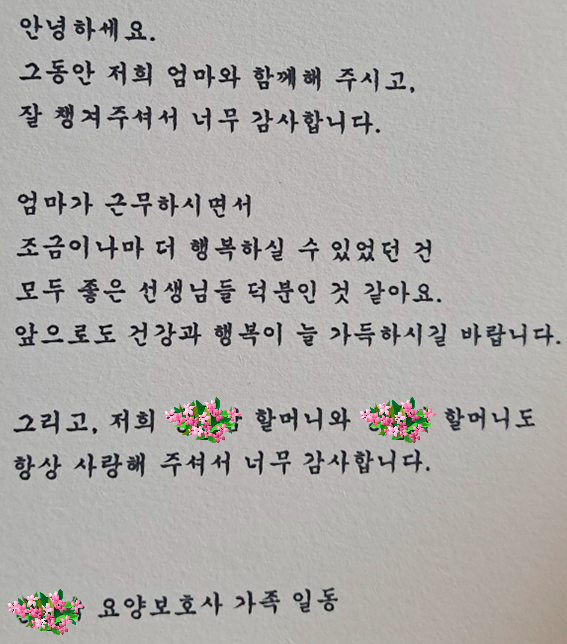 안녕하세요.
그동안 저희 엄마와 함께해 주시고,
잘 챙겨주셔서 너무 감사합니다.
엄마가 근무하시면서
조금이나마 더 행복하실 수 있었던 건
모두 좋은 선생님들 덕분인 것 같아요.
앞으로도 건강과 행복이 늘 가득하시길 바랍니다.
그리고, 저희 할머니와 할머니도
항상 사랑해 주셔서 너무 감사합니다.
요양보호사 가족 일동